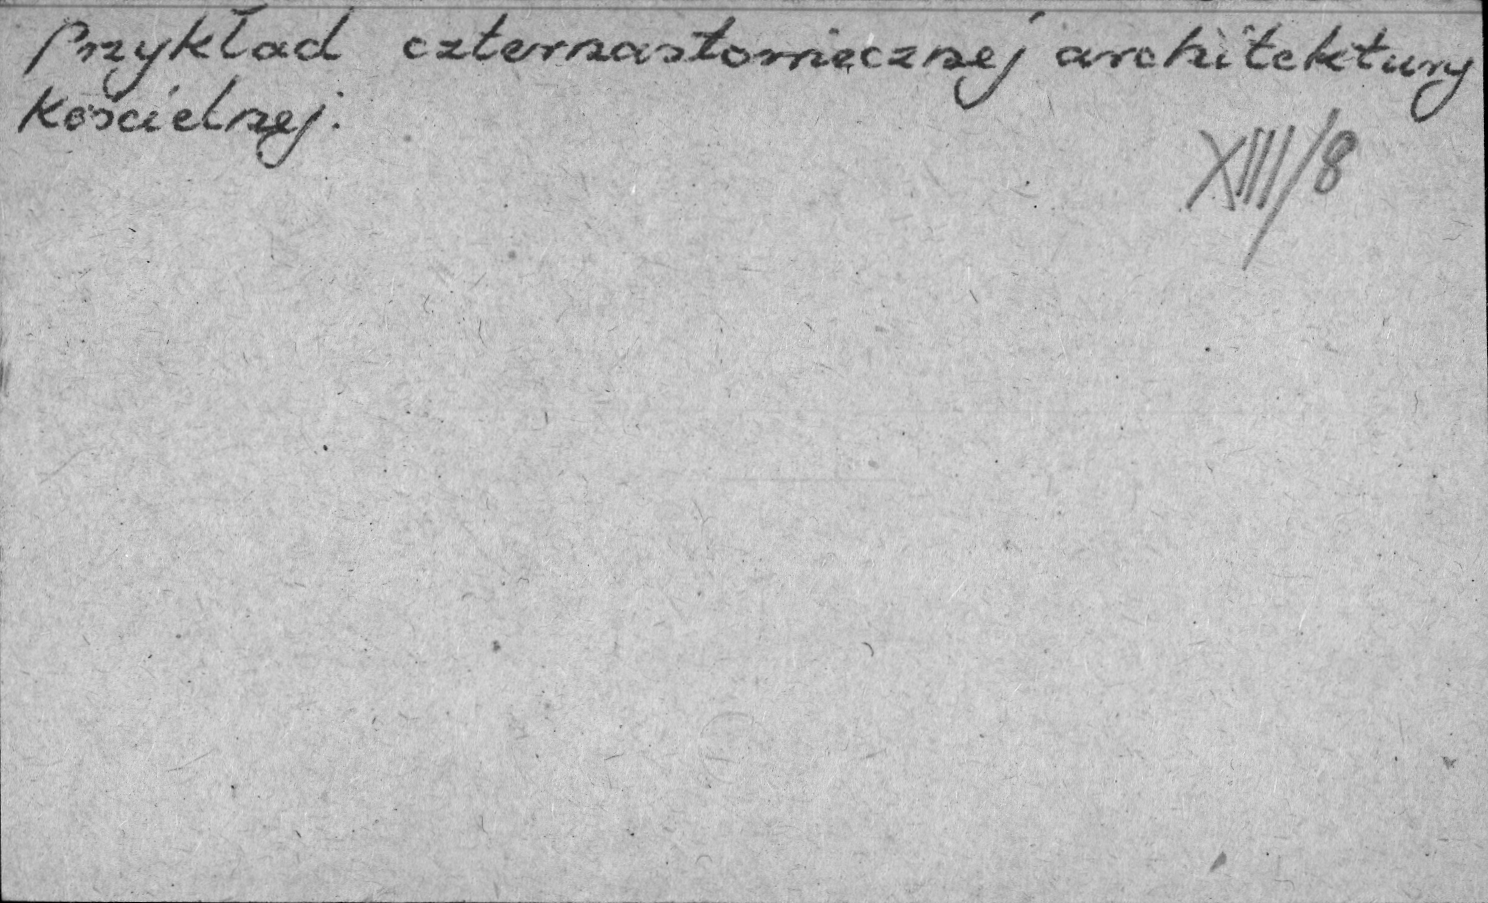 Przykład czternastowiecznej architektury
kościelnej.
XIII/8